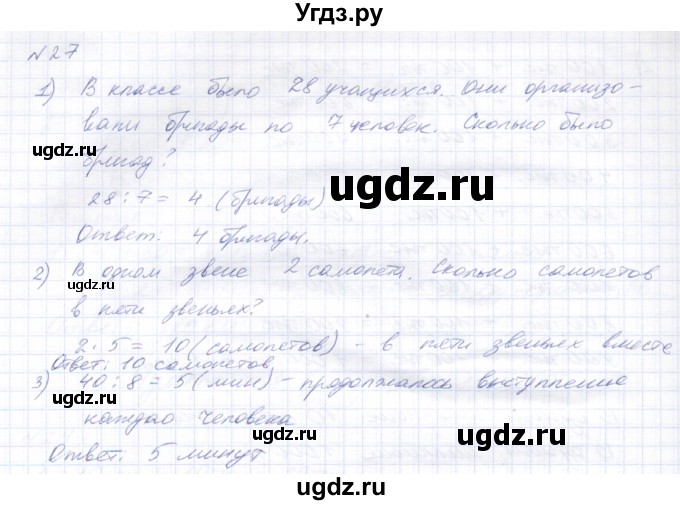 Угдз.ру
№27
1) В классе было 28 учащихся. Они организо-
вали бригады по 7 человек. Сколько было
бригад?
28 : 7 = 4 (бригады)
Ответ: 4 бригады.
2) В одном звене 2 самолета. Сколько самолетов
в пяти звеньях?
2 · 5 = 10 (самолетов) - в пяти звеньях вместе
Ответ: 10 самолетов
3) 40 : 8 = 5 (мин) - продолжалось выступление
каждао человека
Ответ: 5 минут
ugdz.ru
ugdz.ru
ugdz.ru
ugdz.ru
ugdz.ru
ugdz.ru
ugdz.ru
ugdz.ru